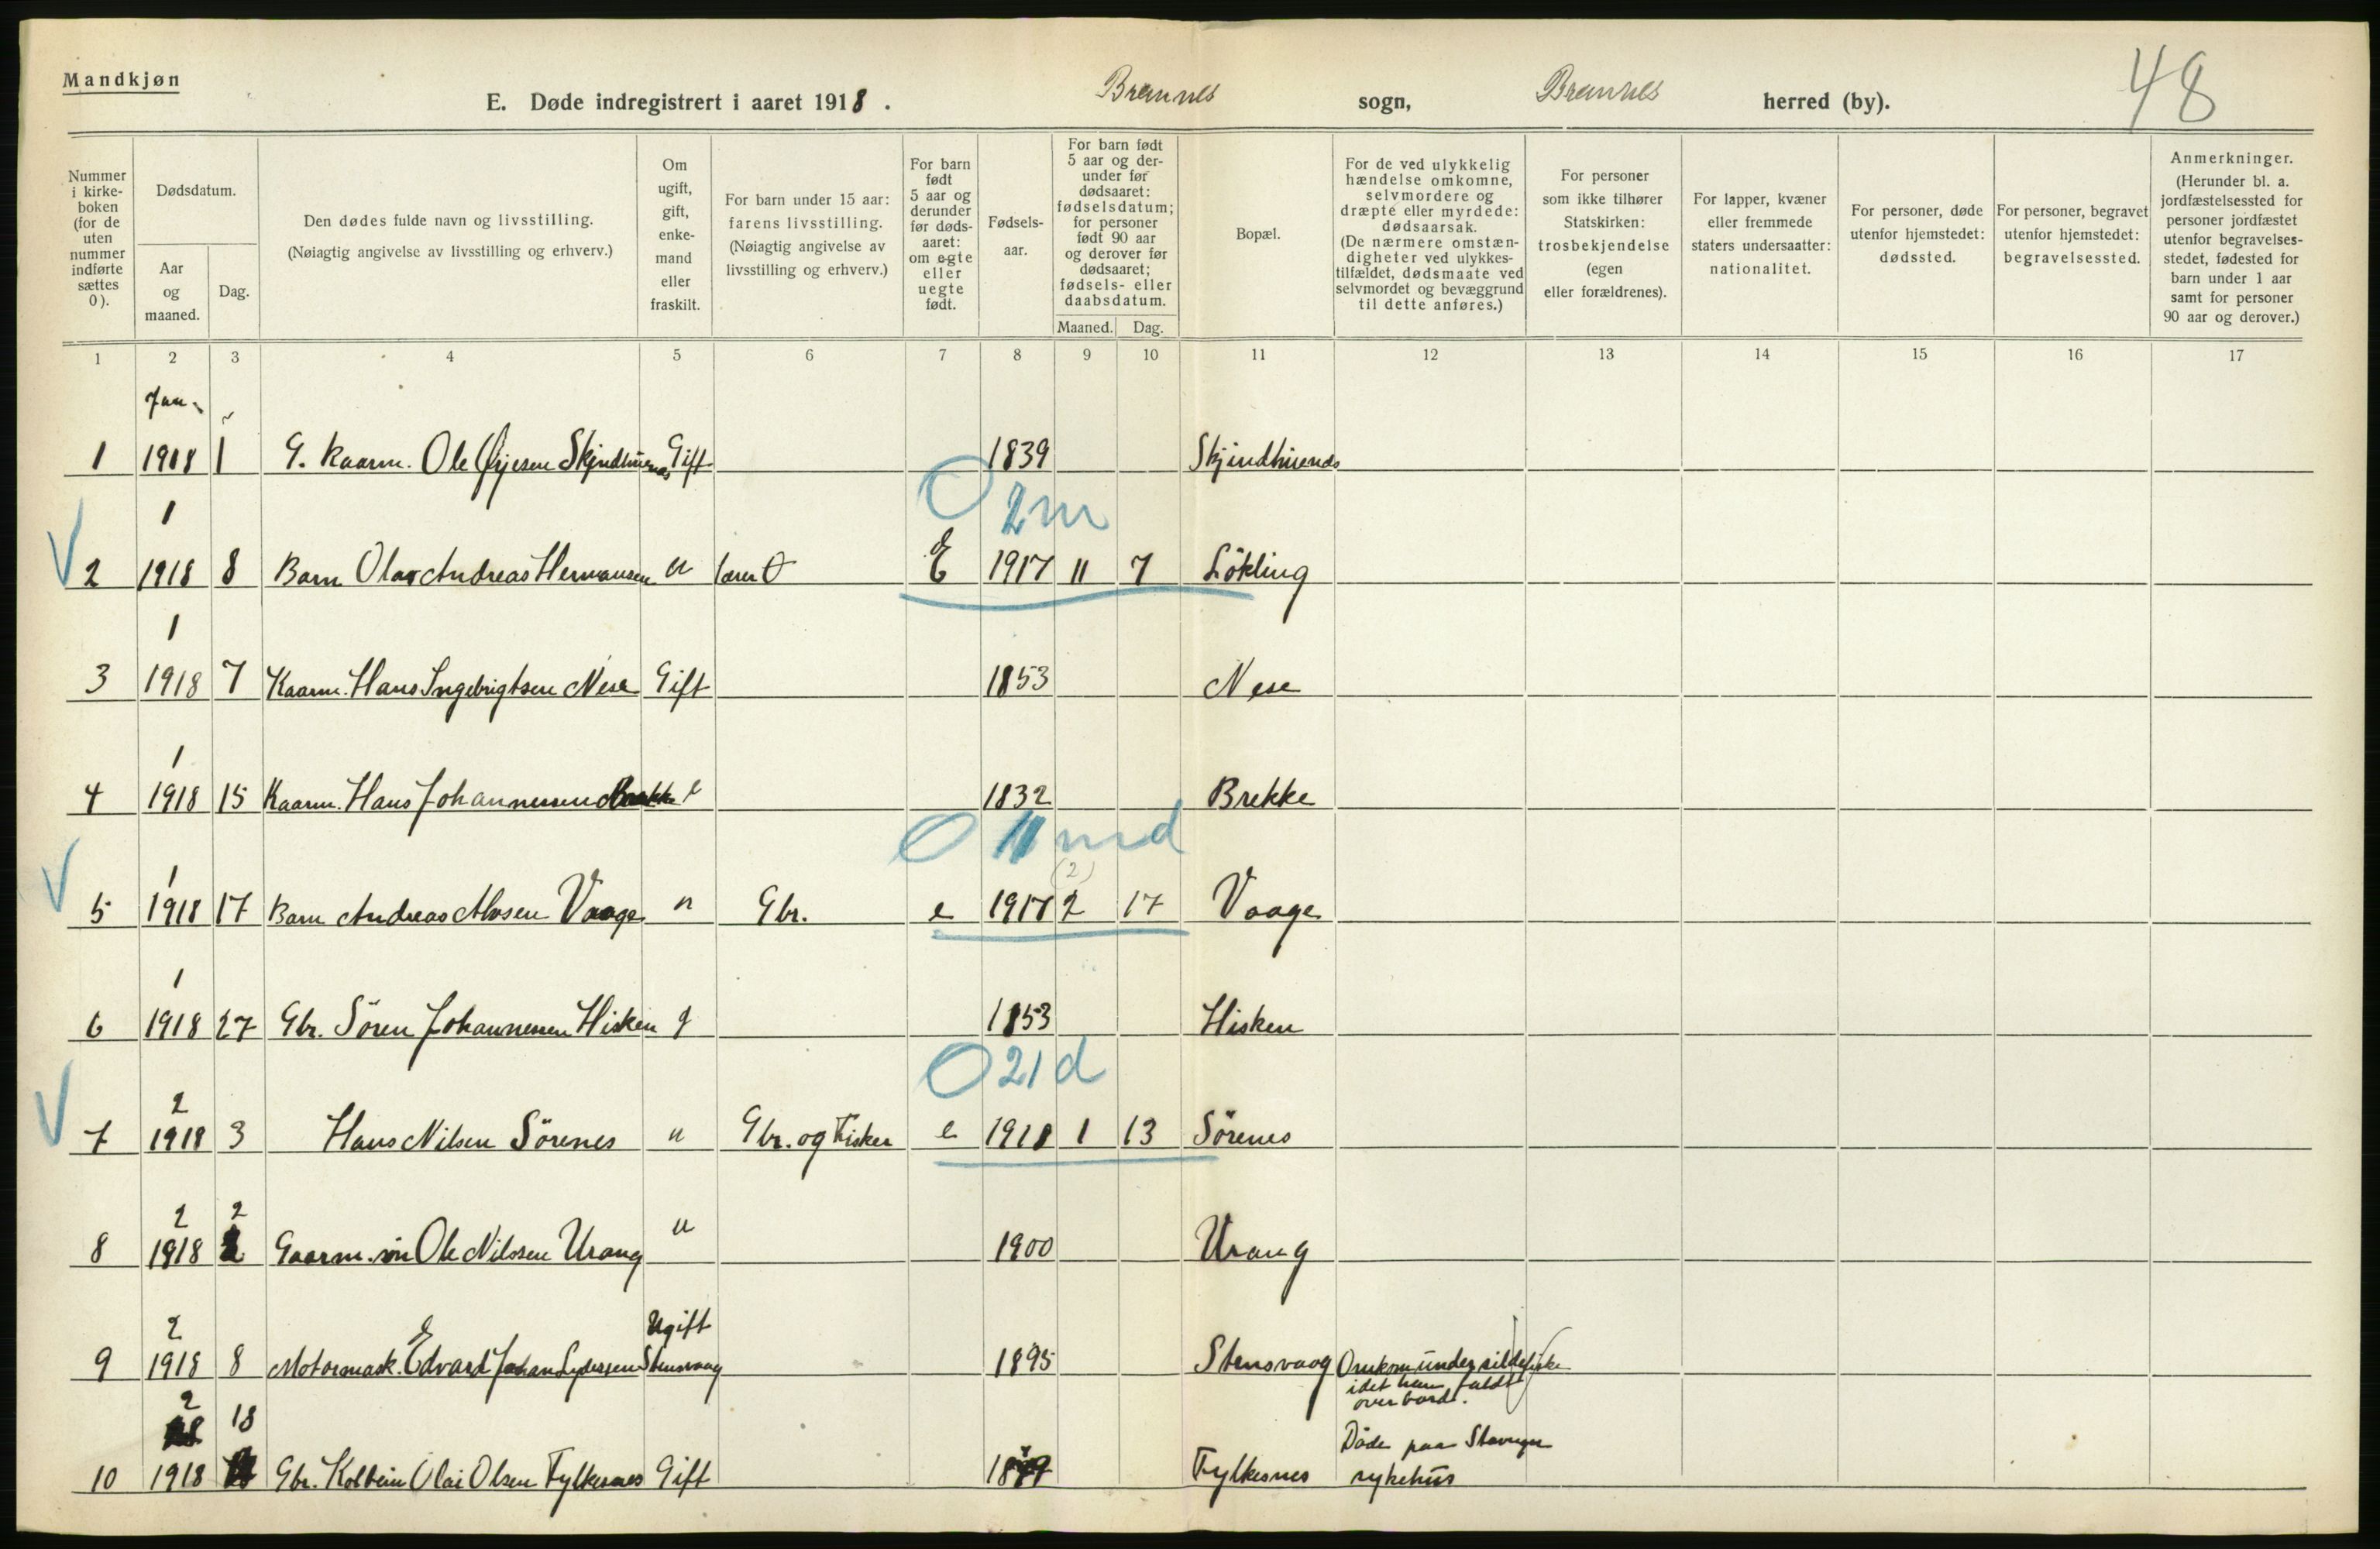 Mandkjøn
E. Døde indregistrert i aaret 1918. Bremnes sogn, Bremnes herred (by). 48
Nummer i kirke- boken (for de uten nummer indførte sættes 0).
Dødsdatum.
Aar og maaned.
Dag.
Den dødes fulde navn og livsstilling.
(Nøiagtig angivelse av livsstilling og erhverv.)
Om ugift, gift, enke- mand eller fraskilt.
For barn under 15 aar: farens livsstilling. (Nøiagtig angivelse av livsstilling og erhverv.)
For barn født 5 aar og derunder før døds- aaret: om egte eller uegte født.
Fødsels- aar.
For barn født 5 aar og der- under før dødsaaret: fødselsdatum; for personer født 90 aar og derover før dødsaaret; fødsels- eller daabsdatum.
Maaned. Dag.
Bopæl.
For de ved ulykkelig hændelse omkomne, selvmordere og dræpte eller myrdede: dødsaarsak. (De nærmere omstæn- digheter ved ulykkes- tilfældet, dødsmaate ved selvmordet og bevæggrund til dette anføres.)
For personer som ikke tilhører Statskirken: trosbekjendelse (egen eller forældrenes).
For lapper, kvæner eller fremmede staters undersaatter: nationalitet.
For personer, døde utenfor hjemstedet: dødssted.
For personer, begravet utenfor hjemstedet: begravelsessted.
Anmerkninger. (Herunder bl. a. jordfæstelsessted for personer jordfæstet utenfor begravelses- stedet, fødested for barn under 1 aar samt for personer 90 aar og derover.)
1 2 3 4 5 6 7 8 9 10 11 12 13 14 15 16 17
Jan.
1 1918 1 G. Kaarm. Ole Gift 1839
0 2m
1
2 1918 8 Barn Olav Andreas Hermansen u E 1917 11 7 Lökling
1
3 1918 7 Kaarm. Hans Ingebrigtsen Nese Gift 1853 Nese
1
4 1918 15 Kaarm. Hans Johannessen Brekke e 1832 Brekke
0 11 md
(2)
1
5 1918 17 Barn Andreas Vaage u Gbr. e 1917 2 17 Vaage
1
6 1918 27 Gbr. Sören Johannessen Hisken g 1853 Hisken
0 21 d
2
7 1918 3 Hans Nilsen Sörenes u Gbr. og Fisker e 1918 1 13 Sörenes
2 2
8 1918 Gaarm. sön Ole Nilssen Urang u 1900 Urang
2 Ugift
9 1918 8 Motormask. Edvard Johan Lyderssen Stensvaag 1895 Stensvaag Omkom under sildefiske
idet han faldt
overbord.
2 18
Döde paa Stavanger
10 1918 Gbr. Kolbein Olai Olsen Fylkesnes Gift Fylkesnes sykehus